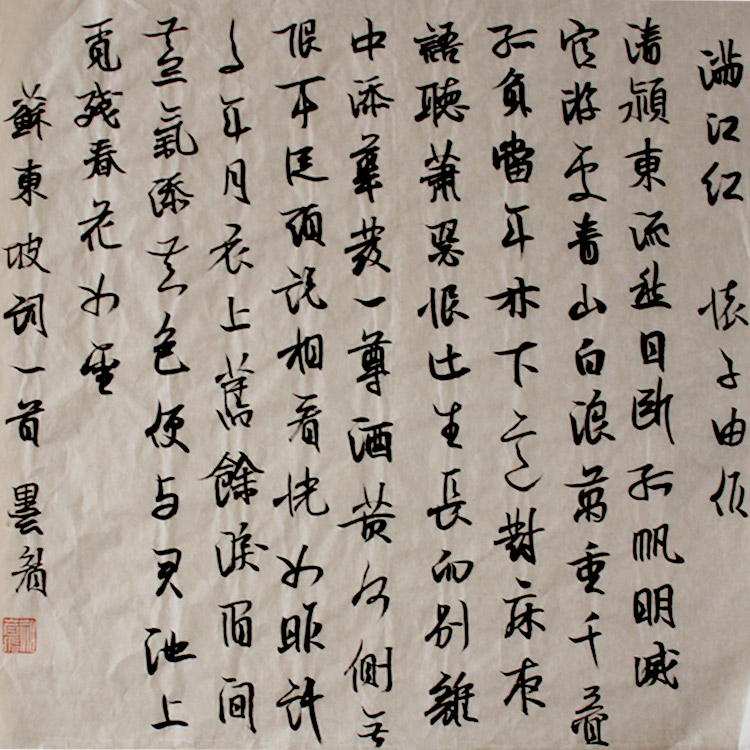 滿江紅 懷子由作
清潁東流愁目斷孤帆明滅
宦游處青山白浪萬重千疊
孤負當年林下意對床夜
語聽蕭瑟恨此生長向別離
中添華發一尊酒黃河側無
限事從頭說相看恍如昨許
多年月衣上舊餘淚眉間
喜氣添黃色便与君池上
覓殘春花如雪
蘇東坡詞一首 曇